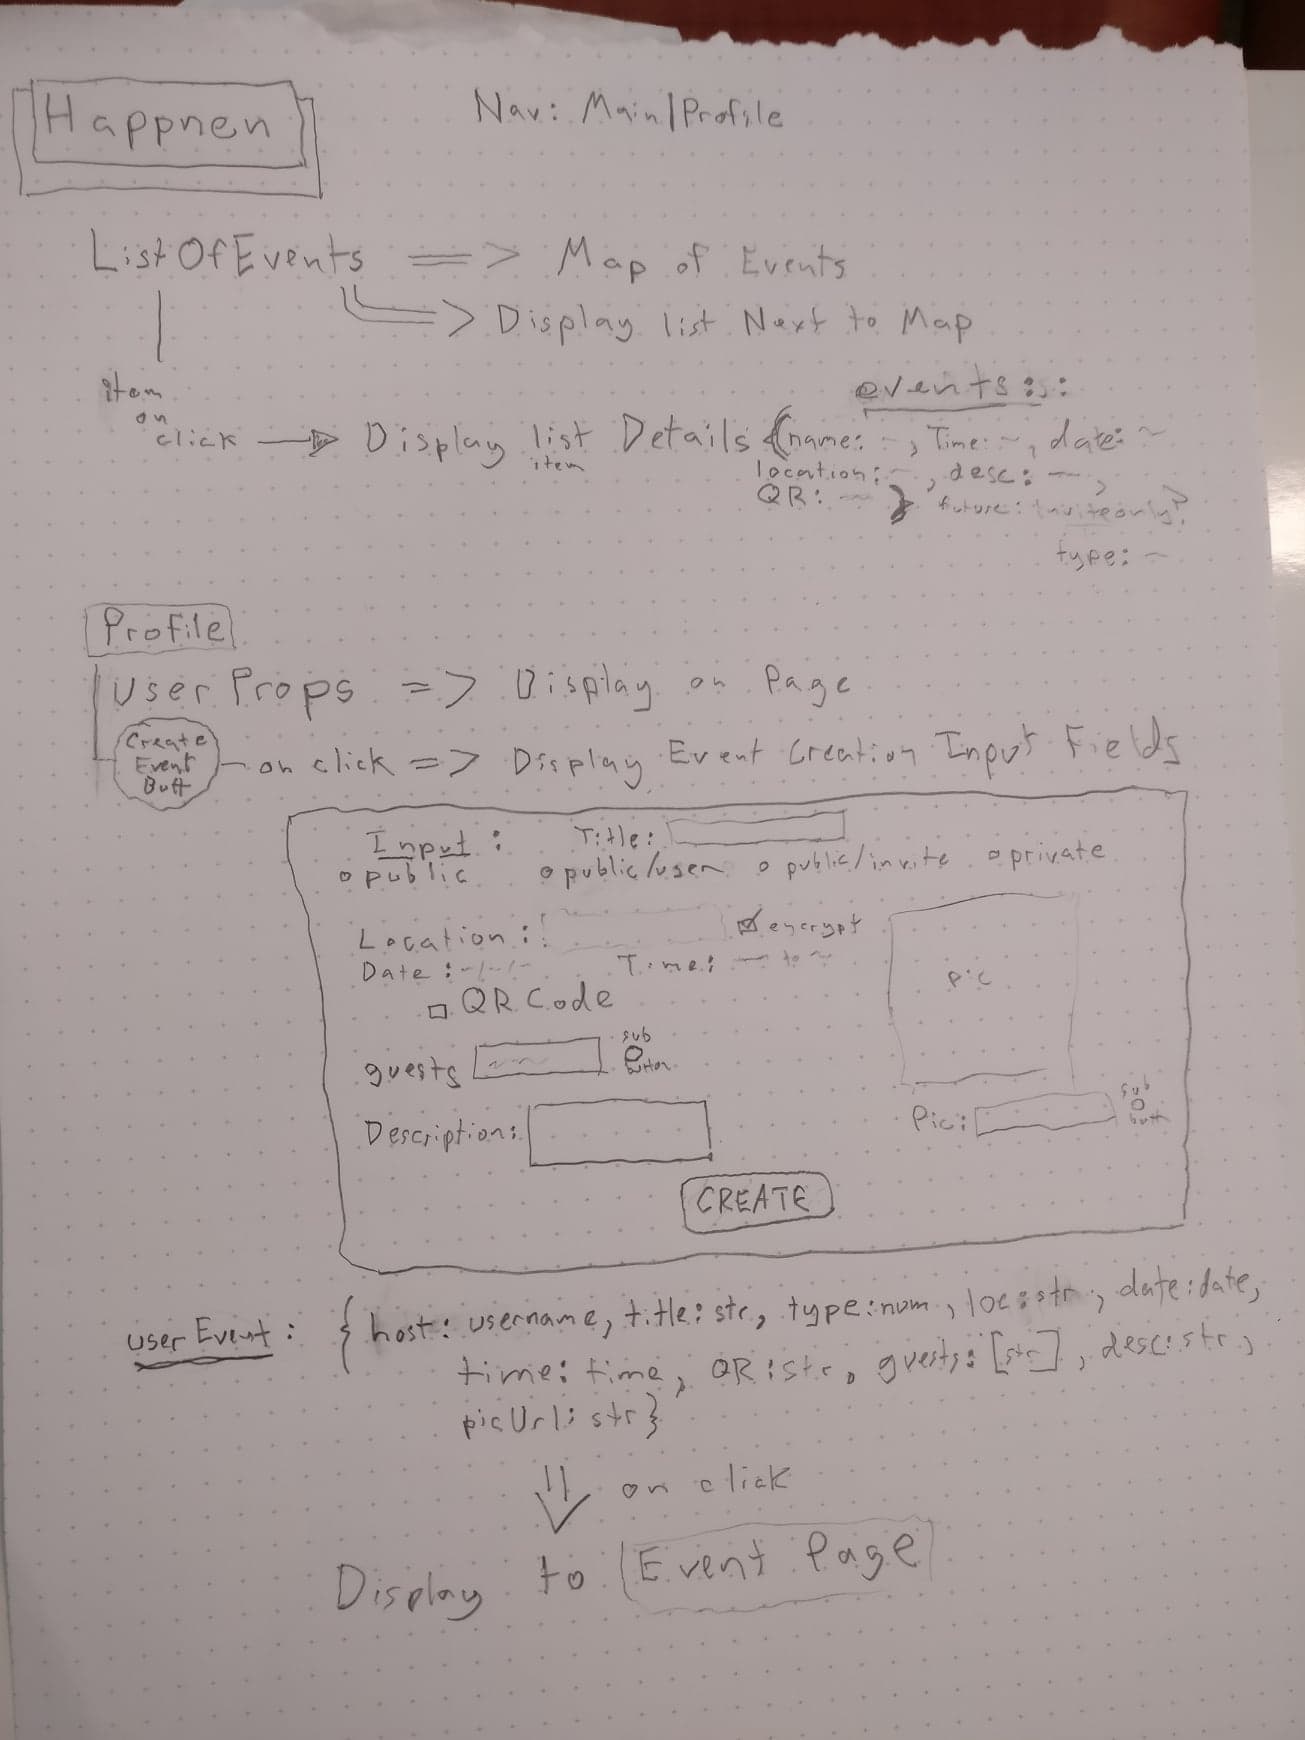 Happnen
Nav: Main/Profile
ListOfEvents => Map of Events
=> Display list Next to Map
item
on
click -> Display list Details
item
events::
{name: ~, Time: ~, date: ~
location: ~, desc: ~,
QR: ~ } future: Inviteonly?
type: ~
Profile
User Props => Display on Page
Create
Event
Butt
on click => Display Event Creation Input Fields
Input: Title:
public public/user public/invite private
Location: encrypt
Date: -/-/- Time: ~ to ~
pic
QR Code
guests
sub
button
Description:
Pic:
sub
butt
CREATE
userEvent: { host: username, title: str, type: num, loc: str, date: date,
time: time, QR: str, guests: [str], desc: str,
picUrl: str}
on click
Display to Event Page